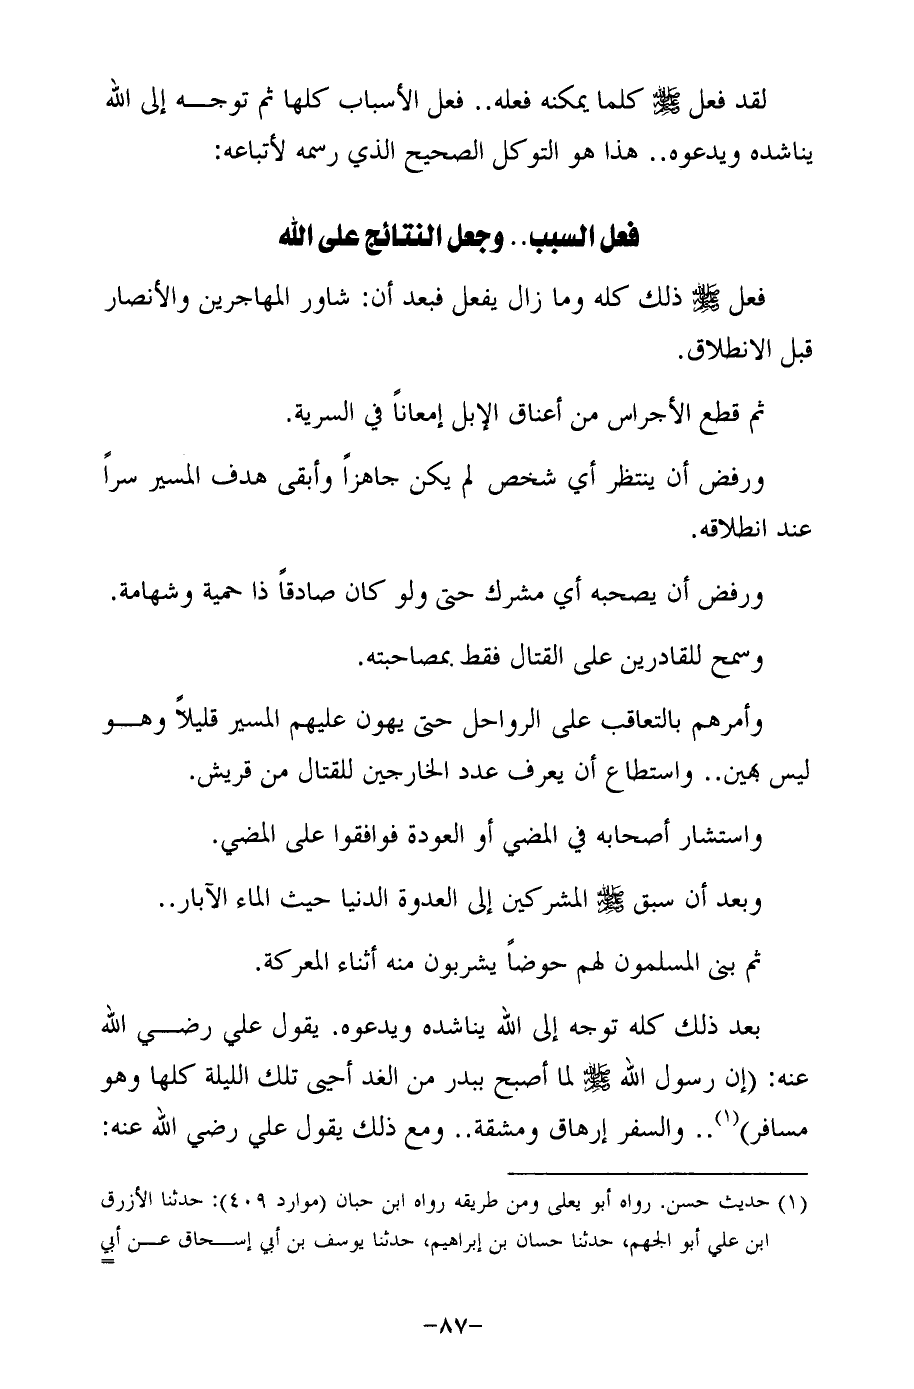 لقد فعل ﷺ كلما يمكنه فعله.. فعل الأسباب كلها ثم توجـــه إلى الله
يناشده ويدعوه.. هذا هو التوكل الصحيح الذي رسمه لأتباعه:
فعل السبب.. وجعل النتائج على الله
فعل ﷺ ذلك كله وما زال يفعل فبعد أن: شاور المهاجرين والأنصار
قبل الانطلاق.
ثم قطع الأجراس من أعناق الإبل إمعاناً في السرية.
ورفض أن ينتظر أي شخص لم يكن جاهزاً وأبقى هدف المسير سراً
عند انطلاقه.
ورفض أن يصحبه أي مشرك حتى ولو كان صادقاً ذا حمية وشهامة.
وسمح للقادرين على القتال فقط بمصاحبته.
وأمرهم بالتعاقب على الرواحل حتى يهون عليهم المسير قليلاً وهـــو
ليس بهين.. واستطاع أن يعرف عدد الخارجين للقتال من قريش.
واستشار أصحابه في المضي أو العودة فوافقوا على المضي.
وبعد أن سبق ﷺ المشركين إلى العدوة الدنيا حيث الماء الآبار..
ثم بنى المسلمون لهم حوضاً يشربون منه أثناء المعركة.
بعد ذلك كله توجه إلى الله يناشده ويدعوه. يقول علي رضـــي الله
عنه: (إن رسول الله ﷺ لما أصبح ببدر من الغد أحيى تلك الليلة كلها وهو
مسافر)(١).. والسفر إرهاق ومشقة.. ومع ذلك يقول علي رضي الله عنه:
(١) حديث حسن. رواه أبو يعلى ومن طريقه رواه ابن حبان (موارد ٤٠٩): حدثنا الأزرق
ابن علي أبو الجهم، حدثنا حسان بن إبراهيم، حدثنا يوسف بن أبي إســـحاق عـــن أبي
=
-٨٧-